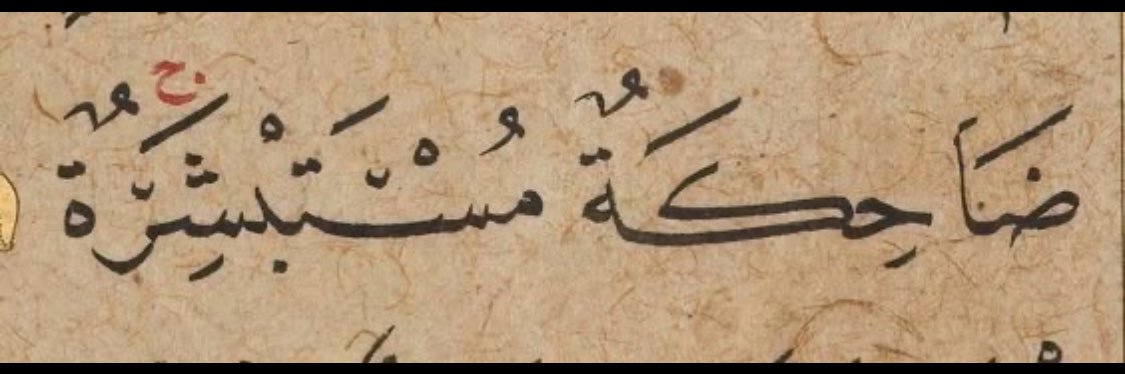 ضَاحِكَةٌ مُسْتَبْشِرَةٌ